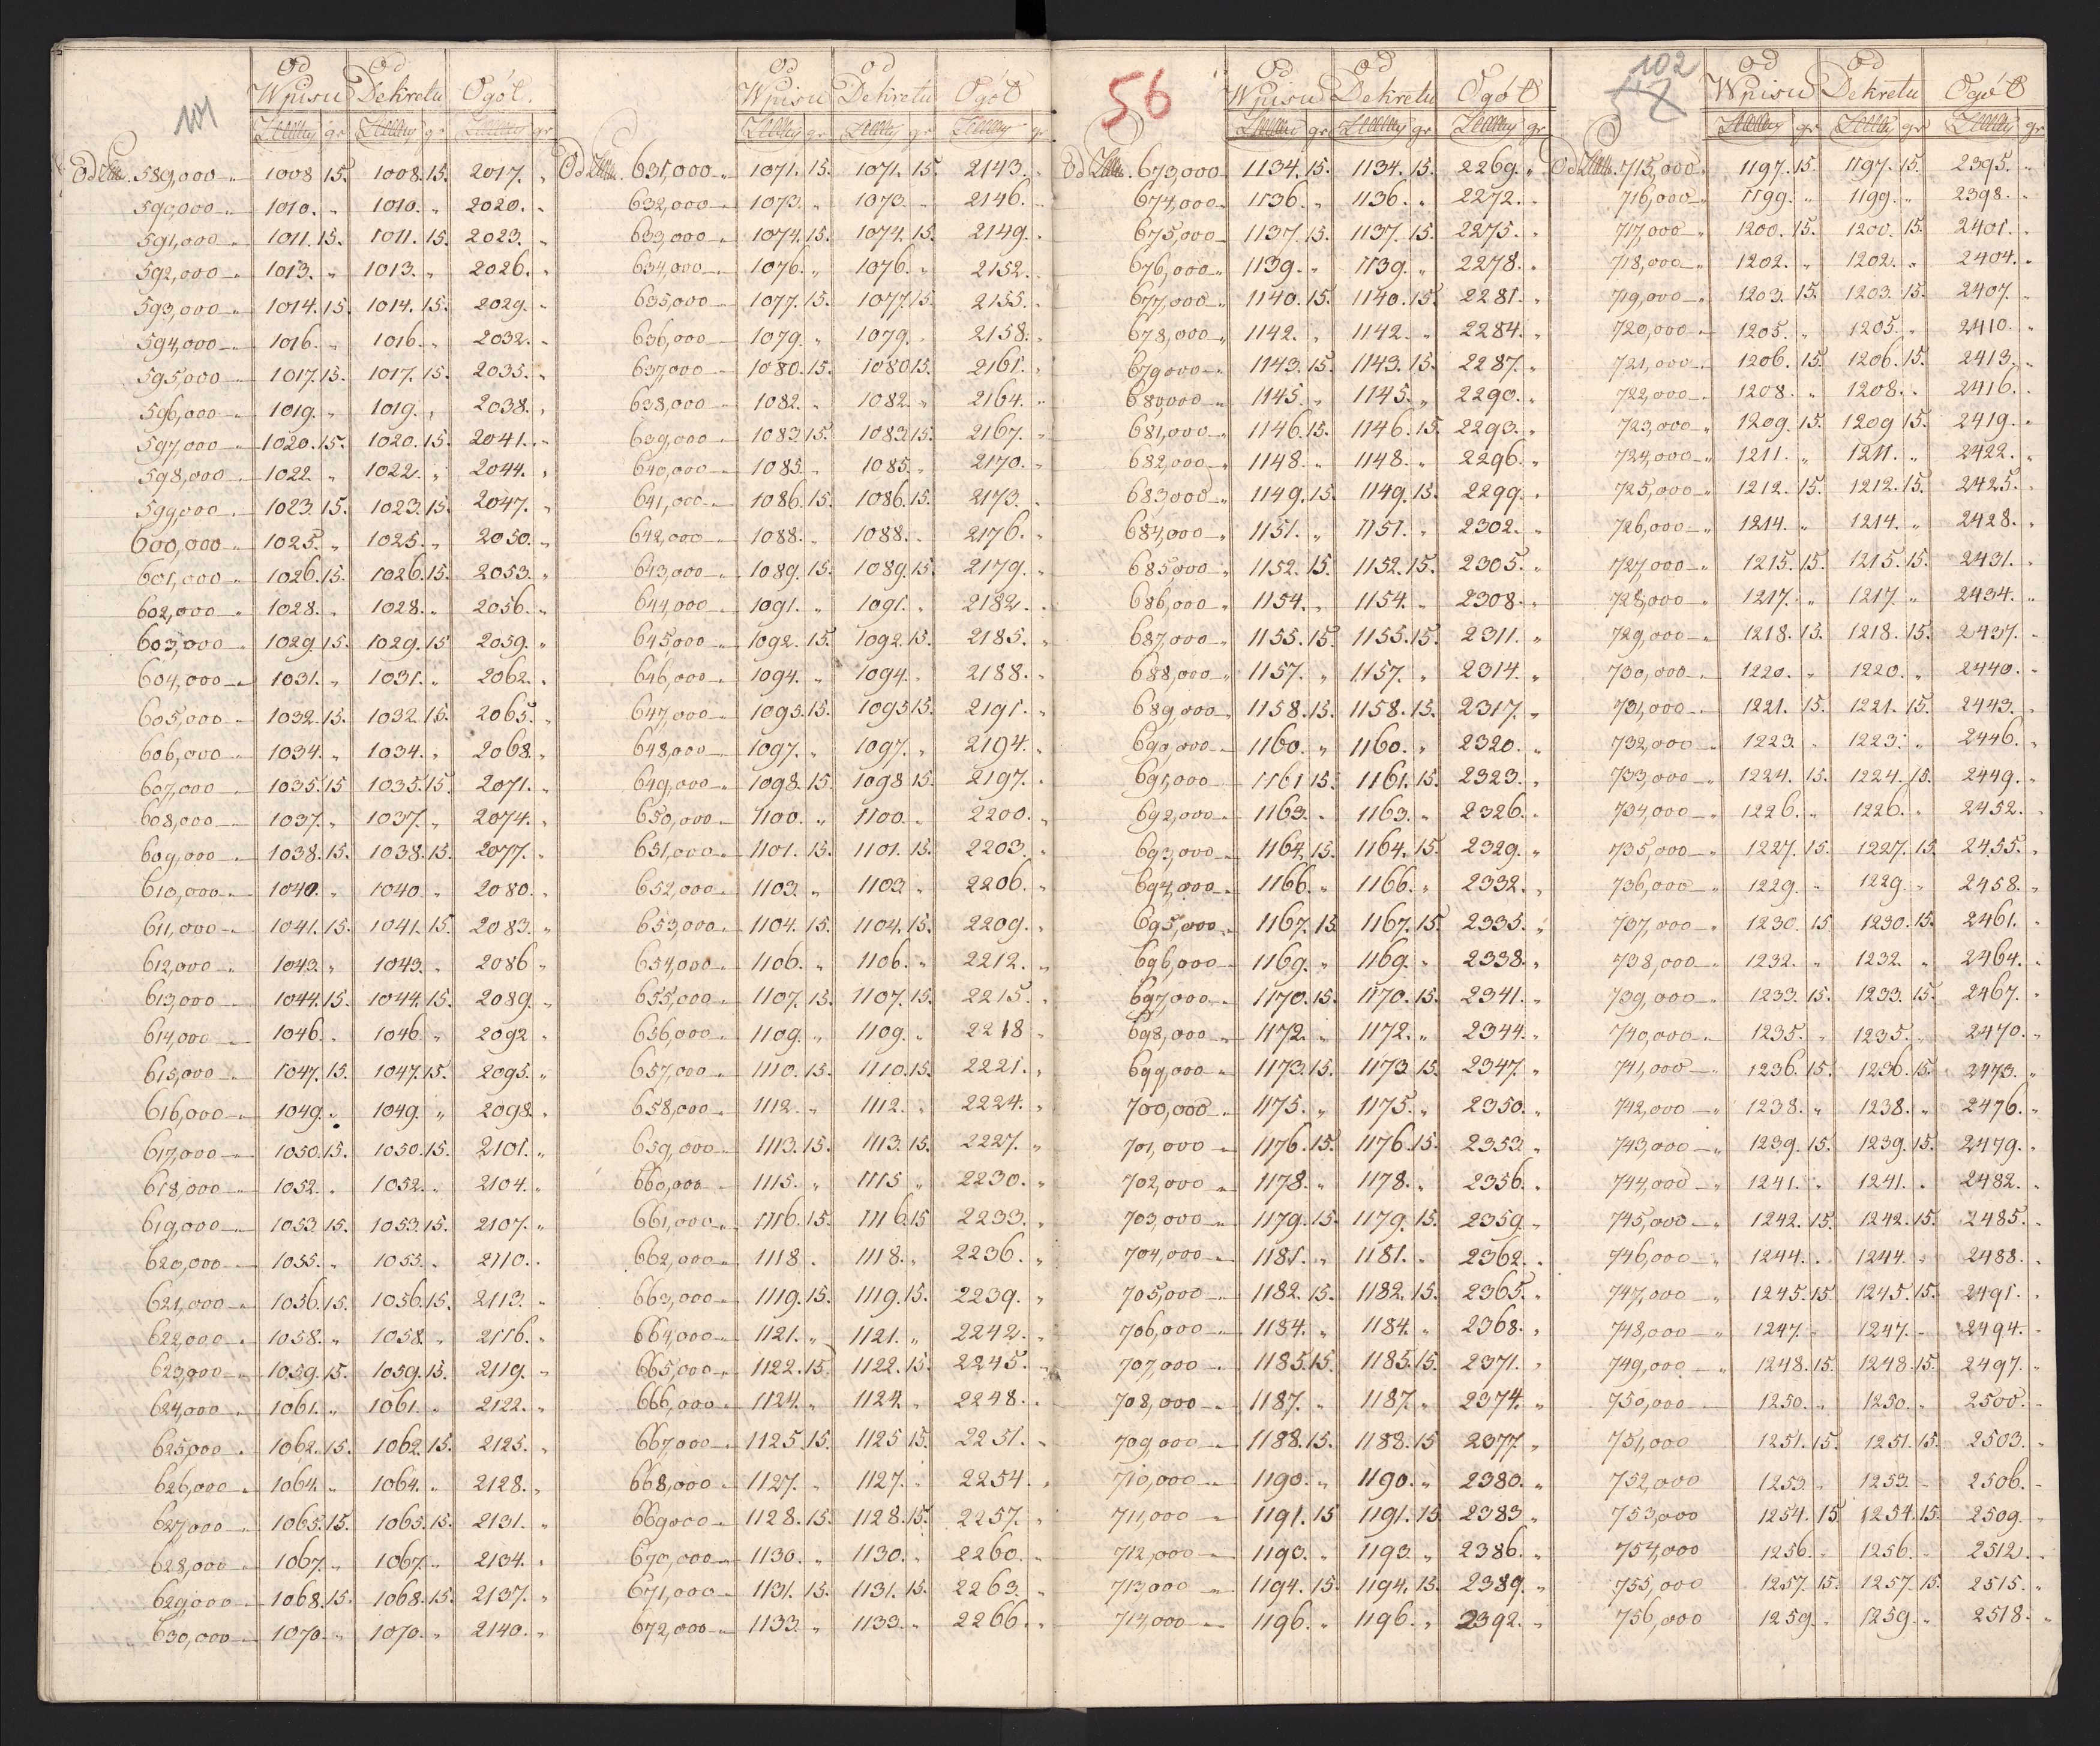 101
Od Od
Wpisu Dekretu Ogół.
gr gr gr
Od 589,000 „ 1008 15. 1008. 15. 2017. „
590,000 „ 1010. „ 1010. „ 2020. „
591,000 „ 1011. 15. 1011. 15. 2023. „
592,000 „ 1013. „ 1013. „ 2026. „
593,000 „ 1014. 15. 1014. 15. 2029. „
594,000 „ 1016. „ 1016. „ 2032. „
595,000 „ 1017. 15. 1017. 15. 2035. „
596,000 „ 1019. „ 1019. „ 2038. „
597,000 „ 1020. 15. 1020. 15. 2041. „
598,000 „ 1022. „ 1022. „ 2044. „
599,000 „ 1023. 15. 1023. 15. 2047. „
600,000 „ 1025. „ 1025. „ 2050. „
601,000 „ 1026. 15. 1026. 15. 2053. „
602,000 „ 1028. „ 1028. „ 2056. „
603,000 „ 1029. 15. 1029. 15 2059. „
604,000 „ 1031. „ 1031. „ 2062. „
605,000 „ 1032. 15. 1032. 15. 2065. „
606,000 „ 1034. „ 1034. „ 2068. „
607,000 „ 1035. 15 1035. 15. 2071. „
608,000 „ 1037. „ 1037. „ 2074. „
609,000 „ 1038. 15. 1038. 15. 2077. „
610,000 „ 1040. „ 1040. „ 2080. „
611,000 „ 1041. 15. 1041. 15. 2083. „
612,000 „ 1043. „ 1043. „ 2086 „
613,000 „ 1044. 15. 1044. 15. 2089. „
614,000 „ 1046. „ 1046. „ 2092 „
615,000 „ 1047. 15. 1047. 15. 2095. „
616,000 „ 1049. „ 1049. „ 2098. „
617,000 „ 1050. 15. 1050. 15. 2101. „
618,000 „ 1052. „ 1052. „ 2104. „
619,000 „ 1053 15. 1053. 15. 2107. „
620,000 „ 1055. „ 1055. „ 2110. „
621,000 „ 1056. 15. 1056. 15. 2113. „
622,000 „ 1058. „ 1058. „ 2116. „
623,000 „ 1059. 15. 1059. 15. 2119. „
624,000 „ 1061. „ 1061. „ 2122. „
625,000 „ 1062. 15. 1062. 15. 2125. „
626,000 „ 1064. „ 1064. „ 2128. „
627,000 „ 1065. 15. 1065. 15. 2131. „
628,000 „ 1067. „ 1067. „ 2134. „
629,000 „ 1068. 15. 1068. 15. 2137. „
630,000 „ 1070. „ 1070. „ 2140. „
Od Od
Wpisu Dekretu Ogół
gr gr gr
Od 631,000 „ 1071. 15. 1071. 15. 2143. „
632,000 „ 1073. „ 1073. „ 2146. „
633,000 „ 1074. 15. 1074. 15. 2149. „
634,000 „ 1076. „ 1076. „ 2152. „
635,000 „ 1077. 15. 1077. 15. 2155. „
636,000 „ 1079. „ 1079. „ 2158. „
637,000 „ 1080. 15. 1080 15. 2161. „
638,000 „ 1082. „ 1082 „ 2164. „
639,000 „ 1083. 15. 1083. 15. 2167. „
640,000 „ 1085. „ 1085. „ 2170. „
641,000 „ 1086. 15. 1086. 15. 2173. „
642,000 „ 1088. „ 1088. „ 2176. „
643,000 „ 1089. 15. 1089. 15. 2179. „
644,000 „ 1091. „ 1091. „ 2182. „
645,000 „ 1092. 15. 1092. 15. 2185. „
646,000 „ 1094. „ 1094. „ 2188. „
647,000 „ 1095. 15. 1095 15. 2191. „
648,000 „ 1097. „ 1097. „ 2194. „
649,000 „ 1098. 15. 1098 15. 2197. „
650,000 „ 1100. „ 1100. „ 2200. „
651,000 „ 1101. 15. 1101. 15. 2203. „
652,000 „ 1103. „ 1103. „ 2206. „
653,000 „ 1104. 15. 1104. 15. 2209. „
654,000 „ 1106. „ 1106. „ 2212. „
655,000 „ 1107. 15. 1107. 15. 2215. „
656,000 „ 1109. „ 1109. „ 2218 „
657,000 „ 1110. 15. 1110. 15. 2221. „
658,000 „ 1112. „ 1112. „ 2224. „
659,000 „ 1113. 15. 1113. 15. 2227. „
660,000 „ 1115. „ 1115 „ 2230. „
661,000 „ 1116. 15. 1116 15 2233. „
662,000 „ 1118. „ 1118. „ 2236. „
663,000 „ 1119. 15. 1119. 15. 2239. „
664,000 „ 1121. „ 1121. „ 2242. „
665,000 „ 1122. 15. 1122. 15. 2245. „
666,000 „ 1124. „ 1124. „ 2248. „
667,000 „ 1125. 15. 1125 15. 2251. „
668,000 „ 1127. „ 1127. „ 2254. „
669,000 „ 1128. 15. 1128. 15. 2257. „
670,000 „ 1130. „ 1130. „ 2260. „
671,000 „ 1131. 15. 1131. 15. 2263. „
672,000 „ 1133. „ 1133. „ 2266. „
56
Od Od
Wpisu Dekretu Ogół
gr gr gr
Od 673,000 1134. 15. 1134. 15. 2269. „
674,000 „ 1136. „ 1136. „ 2272. „
675,000 „ 1137. 15. 1137. 15. 2275. „
676,000 „ 1139. „ 1139. „ 2278. „
677,000 „ 1140. 15. 1140. 15. 2281. „
678,000 „ 1142. „ 1142. „ 2284. „
679,000 „ 1143. 15. 1143. 15. 2287. „
680,000 „ 1145. „ 1145. „ 2290. „
681,000 „ 1146. 15. 1146. 15. 2293. „
682,000 „ 1148. „ 1148. „ 2296. „
683,000 „ 1149. 15. 1149. 15. 2299. „
684,000 „ 1151. „ 1151. „ 2302. „
685,000 „ 1152. 15. 1152. 15. 2305. „
686,000 „ 1154. „ 1154. „ 2308. „
687,000 „ 1155. 15. 1155. 15. 2311. „
688,000 „ 1157. „ 1157. „ 2314. „
689,000 „ 1158. 15. 1158. 15. 2317. „
690,000 „ 1160. „ 1160. „ 2320. „
691,000 1161 15. 1161. 15. 2323. „
692,000 „ 1163. „ 1163. „ 2326. „
693,000 „ 1164. 15. 1164. 15. 2329. „
694,000 „ 1166. „ 1166. „ 2332. „
695,000 „ 1167. 15. 1167. 15. 2335. „
696,000 „ 1169. „ 1169. „ 2338. „
697,000 „ 1170. 15. 1170. 15. 2341. „
698,000 „ 1172. „ 1172. „ 2344. „
699,000 „ 1173. 15. 1173 15. 2347. „
700,000 „ 1175. „ 1175. „ 2350. „
701,000 „ 1176. 15. 1176. 15. 2353. „
702,000 „ 1178. „ 1178. „ 2356. „
703,000 „ 1179. 15. 1179. 15. 2359. „
704,000 „ 1181. „ 1181. „ 2362. „
705,000 „ 1182. 15. 1182. 15. 2365. „
706,000 „ 1184. „ 1184. „ 2368. „
707,000 „ 1185. 15. 1185. 15. 2371. „
708,000 „ 1187. „ 1187. „ 2374. „
709,000 „ 1188. 15. 1188. 15 2377. „
710,000 „ 1190. „ 1190. „ 2380. „
711,000 „ 1191. 15 1191. 15. 2383 „
712,000 „ 1193. „ 1193. „ 2386. „
713,000 „ 1194. 15. 1194. 15. 2389. „
714,000 „ 1196. „ 1196. „ 2392. „
102
Od Od
Wpisu Dekretu Ogół
gr gr gr
Od 715,000 „ 1197. 15. 1197. 15. 2395. „
716,000 „ 1199. „ 1199. „ 2398. „
717,000 „ 1200. 15. 1200. 15. 2401. „
718,000 „ 1202. „ 1202. „ 2404. „
719,000 „ 1203. 15. 1203. 15. 2407. „
720,000 „ 1205. „ 1205. „ 2410. „
721,000 „ 1206. 15. 1206. 15. 2413. „
722,000 „ 1208. „ 1208. „ 2416. „
723,000 „ 1209. 15. 1209 15. 2419. „
724,000 „ 1211. „ 1211. „ 2422. „
725,000 „ 1212. 15. 1212. 15. 2425. „
726,000 „ 1214. „ 1214. „ 2428. „
727,000 „ 1215. 15. 1215. 15. 2431. „
728,000 „ 1217. „ 1217. „ 2434. „
729,000 „ 1218. 15. 1218. 15. 2437. „
730,000 „ 1220. „ 1220. „ 2440. „
731,000 „ 1221. 15. 1221. 15. 2443. „
732,000 „ 1223. „ 1223. „ 2446. „
733,000 „ 1224. 15. 1224. 15. 2449. „
734,000 „ 1226. „ 1226. „ 2452. „
735,000 „ 1227. 15. 1227. 15 2455. „
736,000 „ 1229. „ 1229. „ 2458. „
737,000 „ 1230. 15 1230. 15. 2461. „
738,000 „ 1232. „ 1232. „ 2464. „
739,000 „ 1233. 15. 1233. 15. 2467. „
740,000 „ 1235. „ 1235. „ 2470. „
741,000 „ 1236. 15. 1236. 15. 2473. „
742,000 „ 1238. „ 1238. „ 2476. „
743,000 „ 1239. 15. 1239. 15. 2479. „
744,000 „ 1241. „ 1241. „ 2482. „
745,000 „ 1242. 15. 1242. 15. 2485. „
746,000 „ 1244. „ 1244. „ 2488. „
747,000 „ 1245. 15. 1245. 15. 2491. „
748,000 „ 1247. „ 1247. „ 2494. „
749,000 „ 1248. 15. 1248. 15. 2497. „
750,000 1250. „ 1250. „ 2500. „
751,000 1251. 15. 1251. 15. 2503. „
752,000 1253. „ 1253. „ 2506. „
753,000 1254. 15. 1254. 15. 2509. „
754,000 1256. „ 1256. „ 2512. „
755,000 1257. 15. 1257. 15. 2515. „
756,000 1259. „ 1259. „ 2518. „